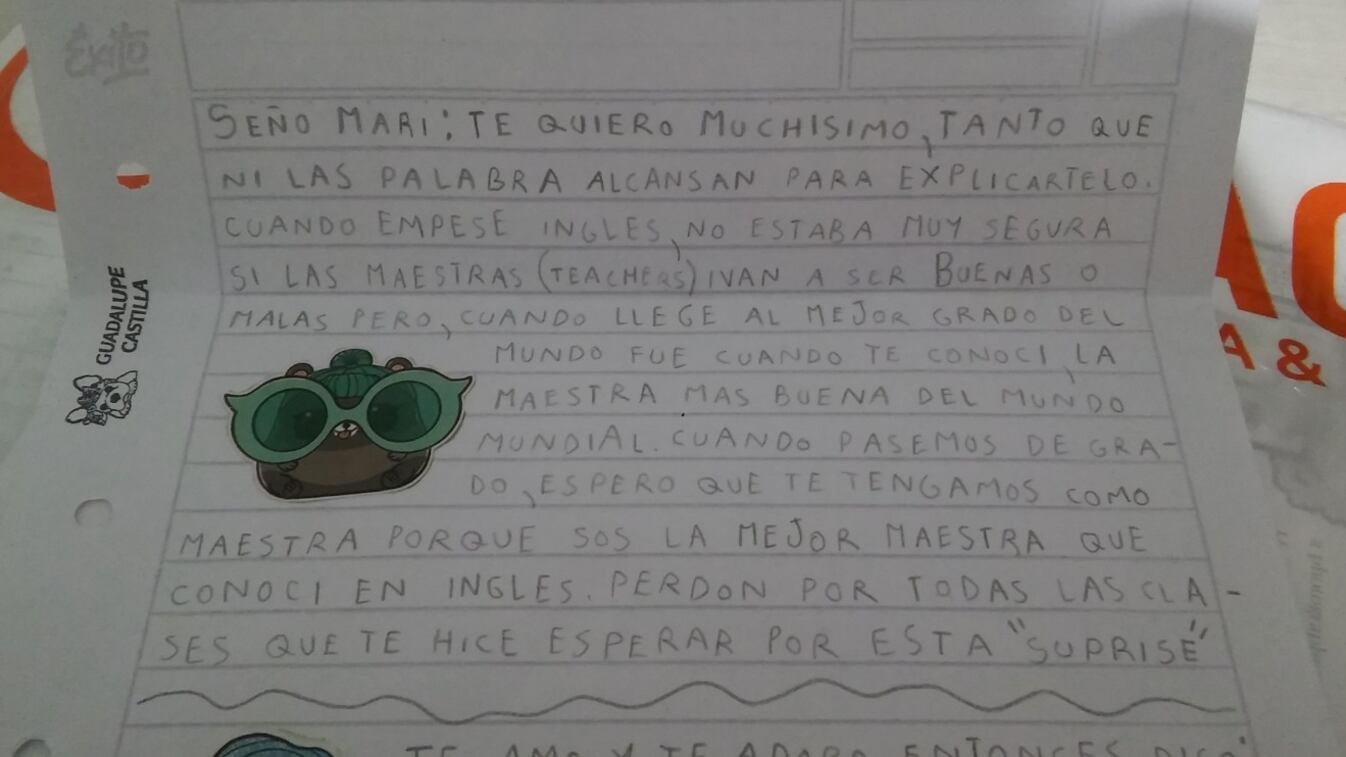 Éxito
SEÑO MARI: TE QUIERO MUCHISIMO, TANTO QUE
NI LAS PALABRA ALCANSAN PARA EXPLICARTELO.
CUANDO EMPESE INGLES, NO ESTABA MUY SEGURA
SI LAS MAESTRAS (TEACHERS) IVAN A SER BUENAS O
MALAS PERO, CUANDO LLEGE AL MEJOR GRADO DEL
MUNDO FUE CUANDO TE CONOCI, LA
MAESTRA MAS BUENA DEL MUNDO
MUNDIAL. CUANDO PASEMOS DE GRA-
DO, ESPERO QUE TE TENGAMOS COMO
MAESTRA PORQUE SOS LA MEJOR MAESTRA QUE
CONOCI EN INGLES. PERDON POR TODAS LAS CLA-
SES QUE TE HICE ESPERAR POR ESTA "SUPRISE"
TE AMO Y TE ADORO ENTONCES DIGO
GUADALUPE
CASTILLA
A &